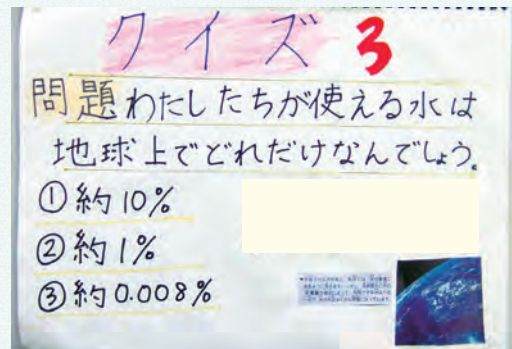 クイズ 3
問題わたしたちが使える水は
地球上でどれだけなんでしょう。
①約10%
②約1%
③約0.008%